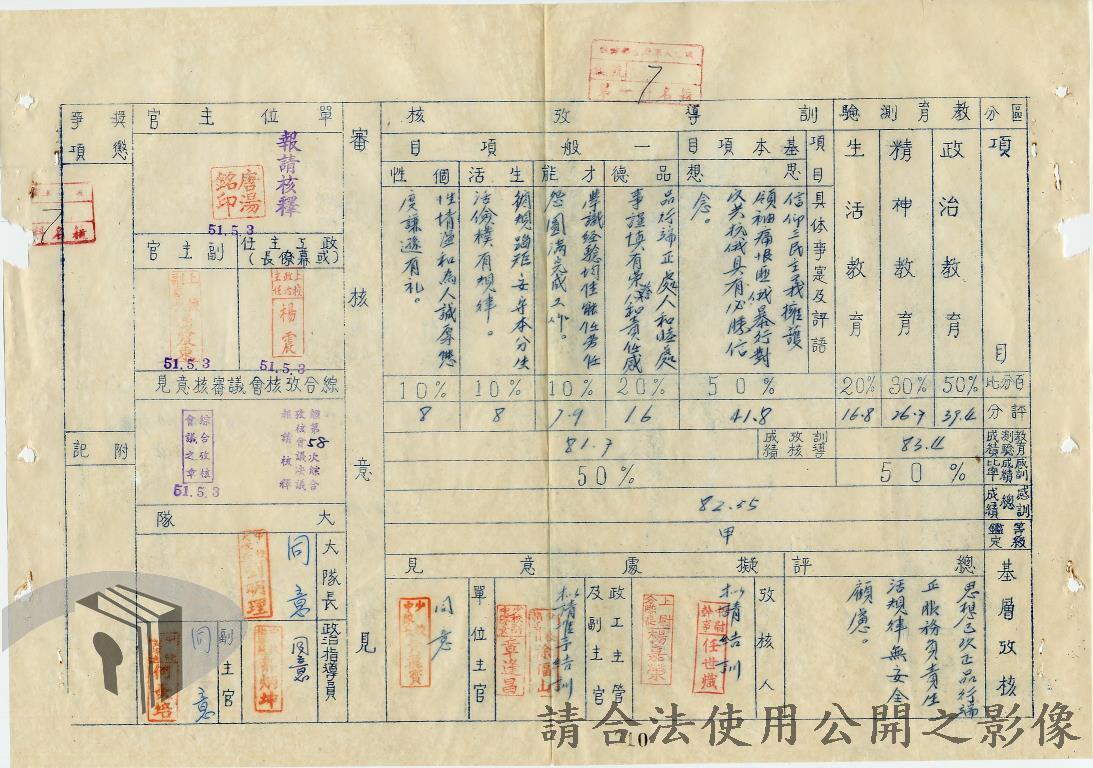 7
區分
項目
百分比
評分
教育測驗成績
感訓成績比率
感訓總成績
等級鑑定
基層攷核
教育測驗
政治教育
精神教育
生活教育
50%
30%
20%
39.4
26.7
16.8
83.4
50%
訓導攷核
項目
具体事寔及評語
基本項目
思想
信仰三民主義擁護
領袖痛恨匪俄暴行對
反共抗俄具有必勝信
念。
50%
41.8
一般項目
品德
品行端正處人和睦處
事謹慎有榮譽和責任感
20%
16
才能
學識經驗均佳能任勞任
怨圓滿完成工作。
10%
7.9
生活
循規蹈矩安守本分生
活儉樸有規律。
10%
8
個性
性情溫和為人誠厚態
度謙遜有礼。
10%
8
訓導攷核成績
81.7
50%
82.55
甲
總評
思想已改正品行端
正服務負責生
活規律無安全
顧慮。
擬處意見
攷核人
擬請結訓
中尉幹事任世熾
上尉
楊嘉榮
政工主管及副主官
擬請准予結訓
章逢昌
單位主官
同意
審核意見
單位主官
報請核釋
唐湯銘印
51.5.3
政工主任(或幕僚長)
上校政治主任楊震
51.5.3
副主官
51.5.3
綜合攷核會議審核意見
經第58次綜合
攷核會議決議
報請核釋
綜合攷核會議之章
51.5.3
大隊
大隊長
同意
政治指導員
同意
副主官
同意
獎懲事項
附記
10
請合法使用公開之影像